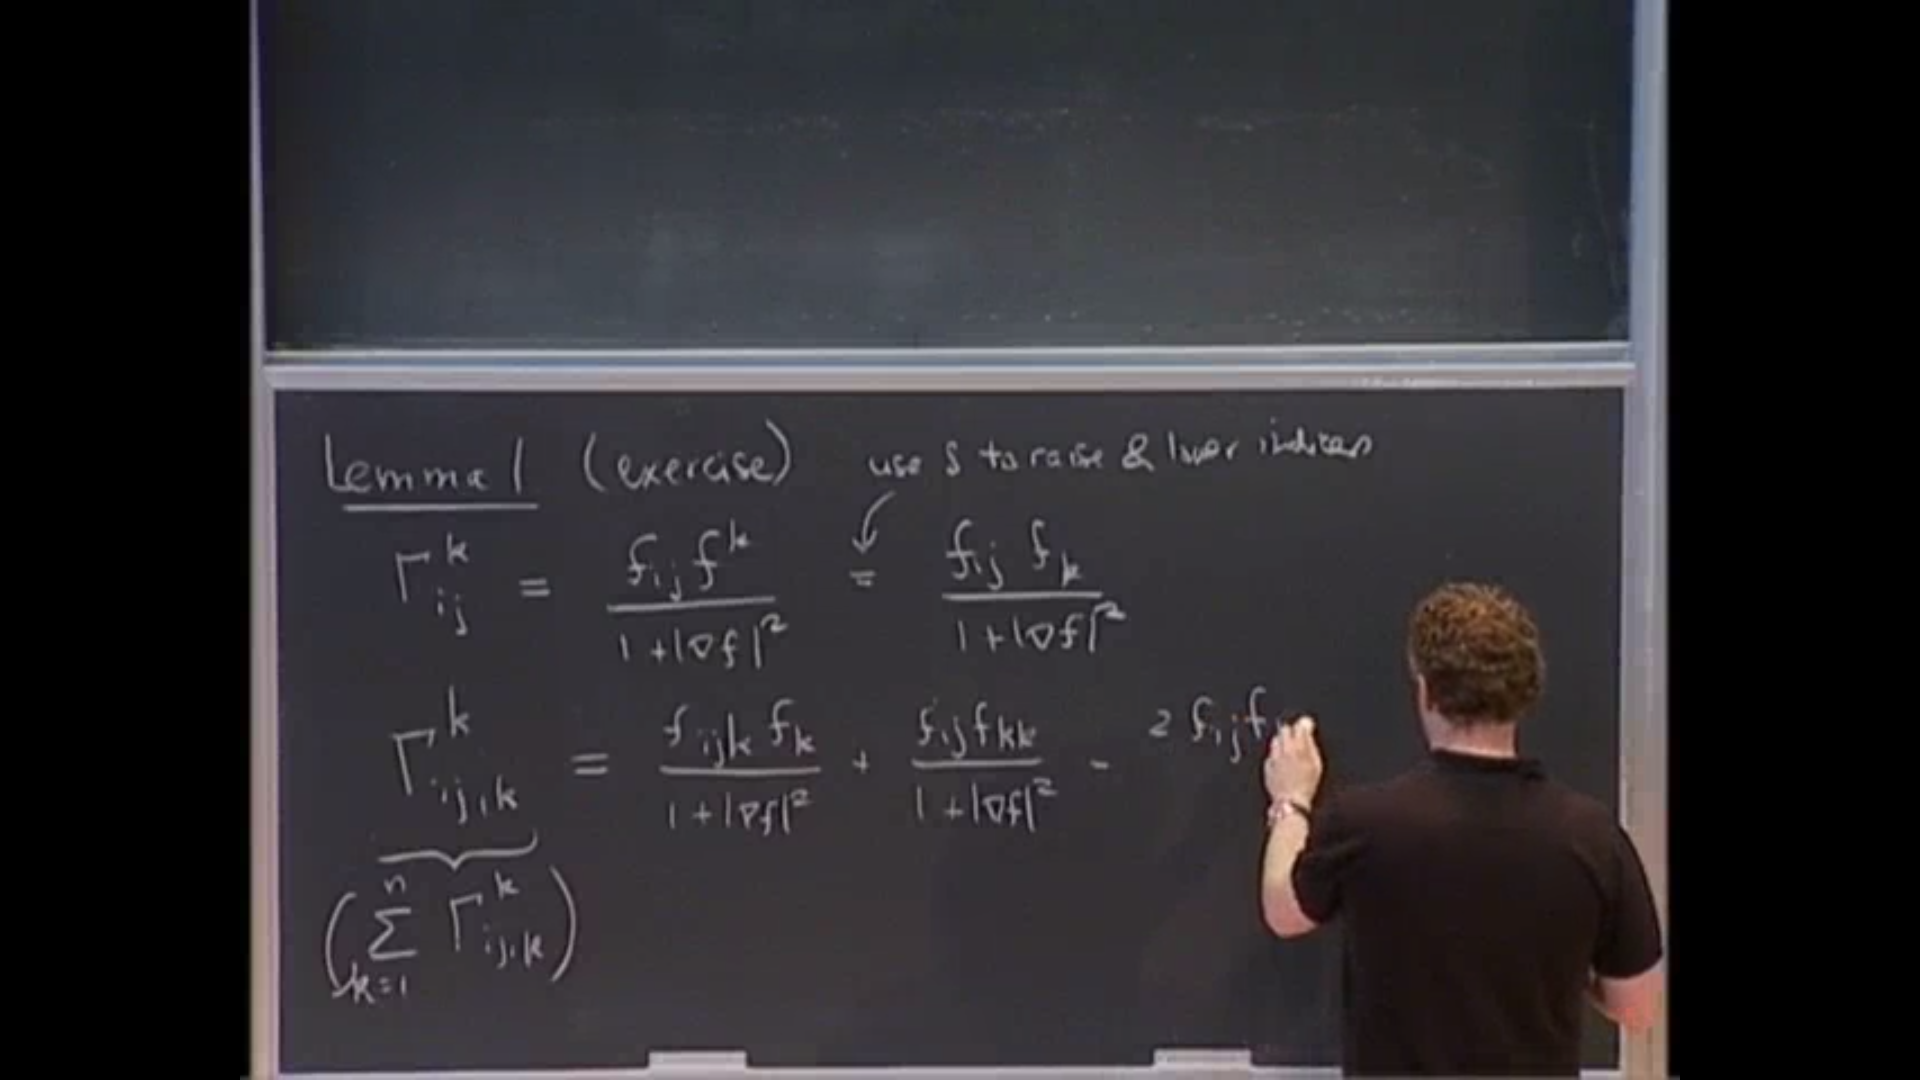 Lemma 1 (exercise) use δ to raise & lower indices
Γ^k_{ij} = \frac{f_{ij} f^k}{1+|∇f|^2} = \frac{f_{ij} f_k}{1+|∇f|^2}
Γ^k_{ij,k} = \frac{f_{ijk} f_k}{1+|∇f|^2} + \frac{f_{ij} f_{kk}}{1+|∇f|^2} - 2 f_{ij} f
(\sum_{k=1}^{n} Γ^k_{ij,k})